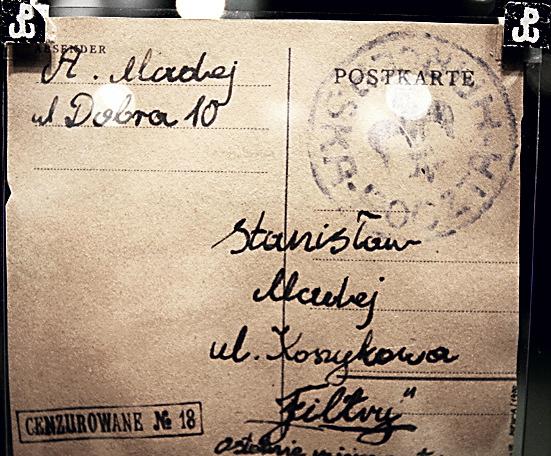 ABSENDER
A. Madej
ul Dobra 10
POSTKARTE
HARCERSKA POCZTA
Stanisław
Madej
ul. Koszykowa
„Filtry"
CENZUROWANE № 18